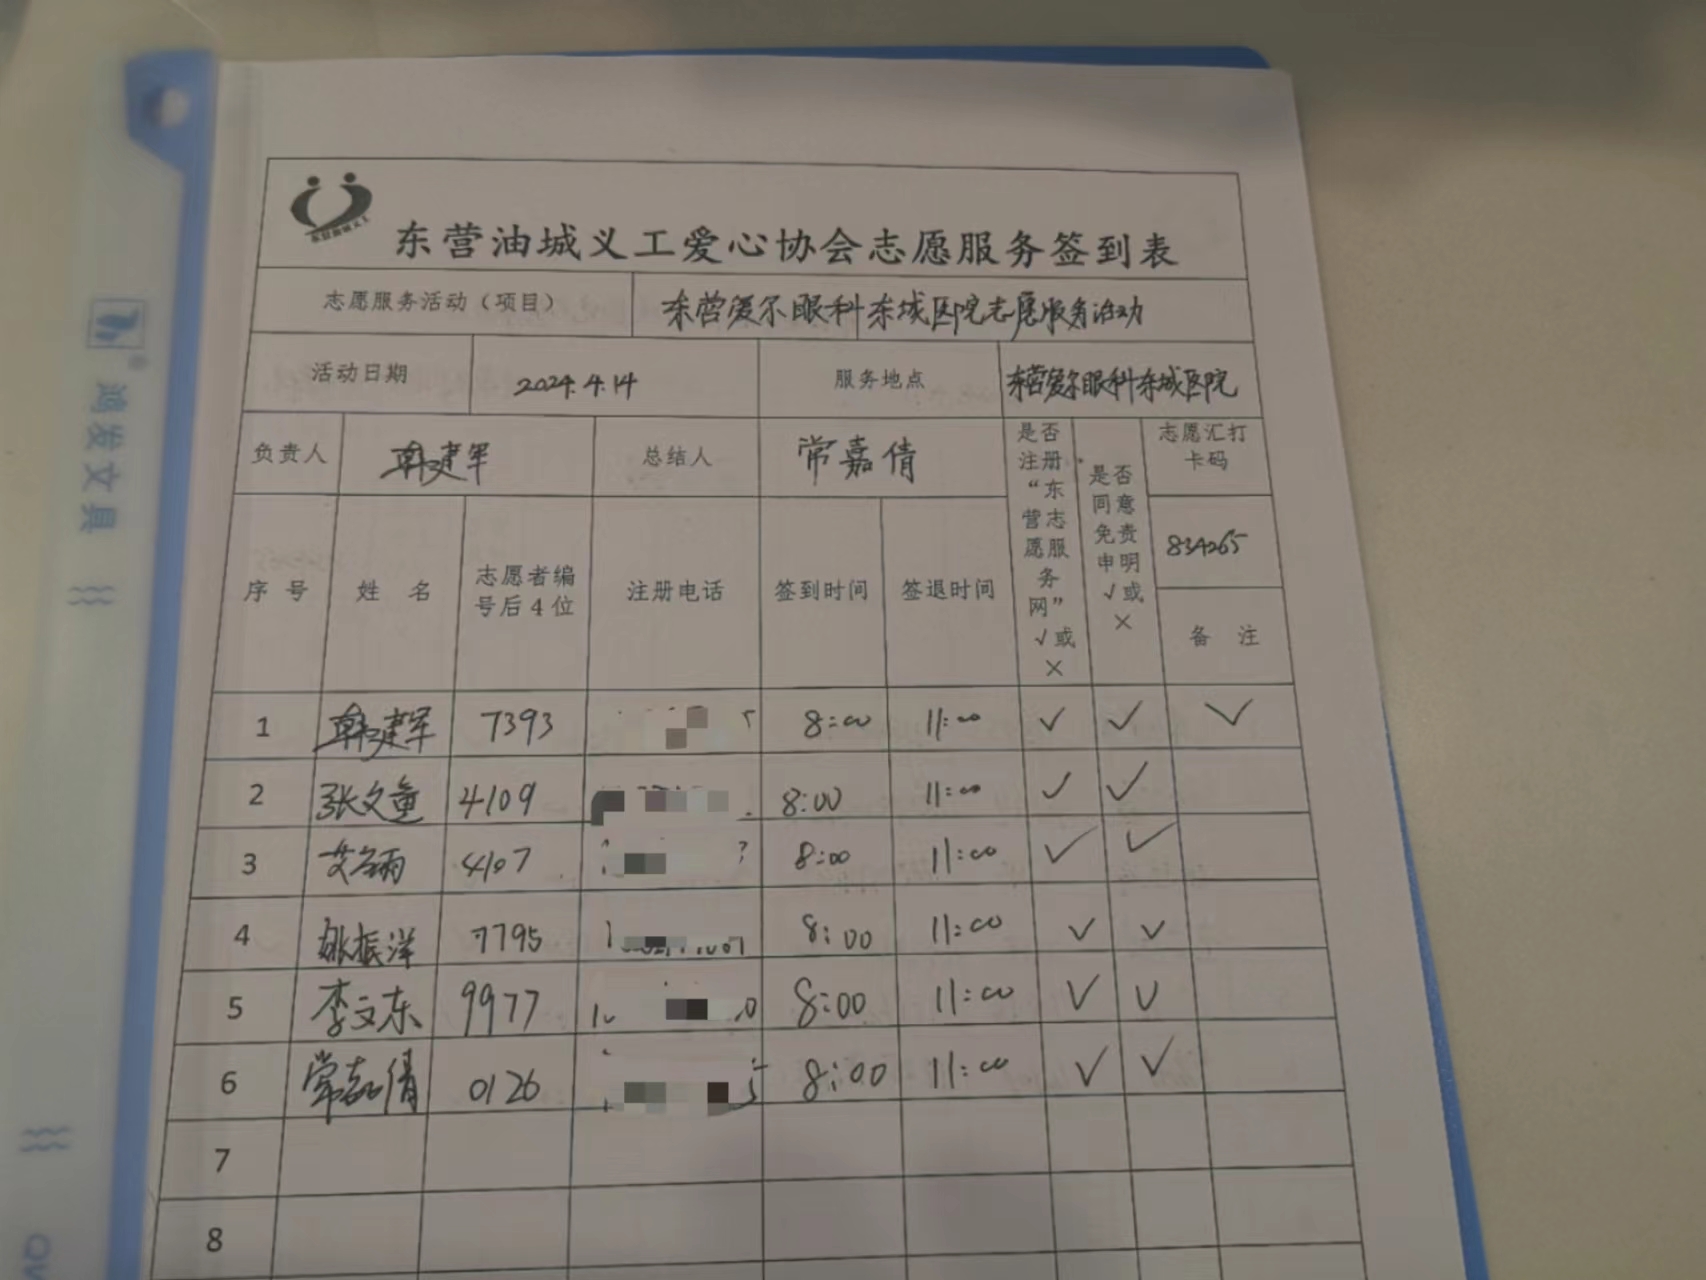 东营油城义工爱心协会志愿服务签到表
志愿服务活动（项目） 东营爱尔眼科东城医院志愿服务活动
活动日期 2024.4.14 服务地点 东营爱尔眼科东城医院
负责人 韩建军 总结人 常嘉倩 是否注册“东营志愿服务网”√或× 是否同意免责申明√或× 志愿汇打卡码
834265
序号 姓名 志愿者编号后4位 注册电话 签到时间 签退时间 备注
1 韩建军 7393 8:00 11:00 ✓ ✓ ✓
2 张文童 4109 8:00 11:00 ✓ ✓
3 4107 8:00 11:00 ✓ ✓
4 姚振洋 7795 8:00 11:00 ✓ ✓
5 李文东 9977 8:00 11:00 ✓ ✓
6 常嘉倩 0126 8:00 11:00 ✓ ✓
7
8
鸿发文具